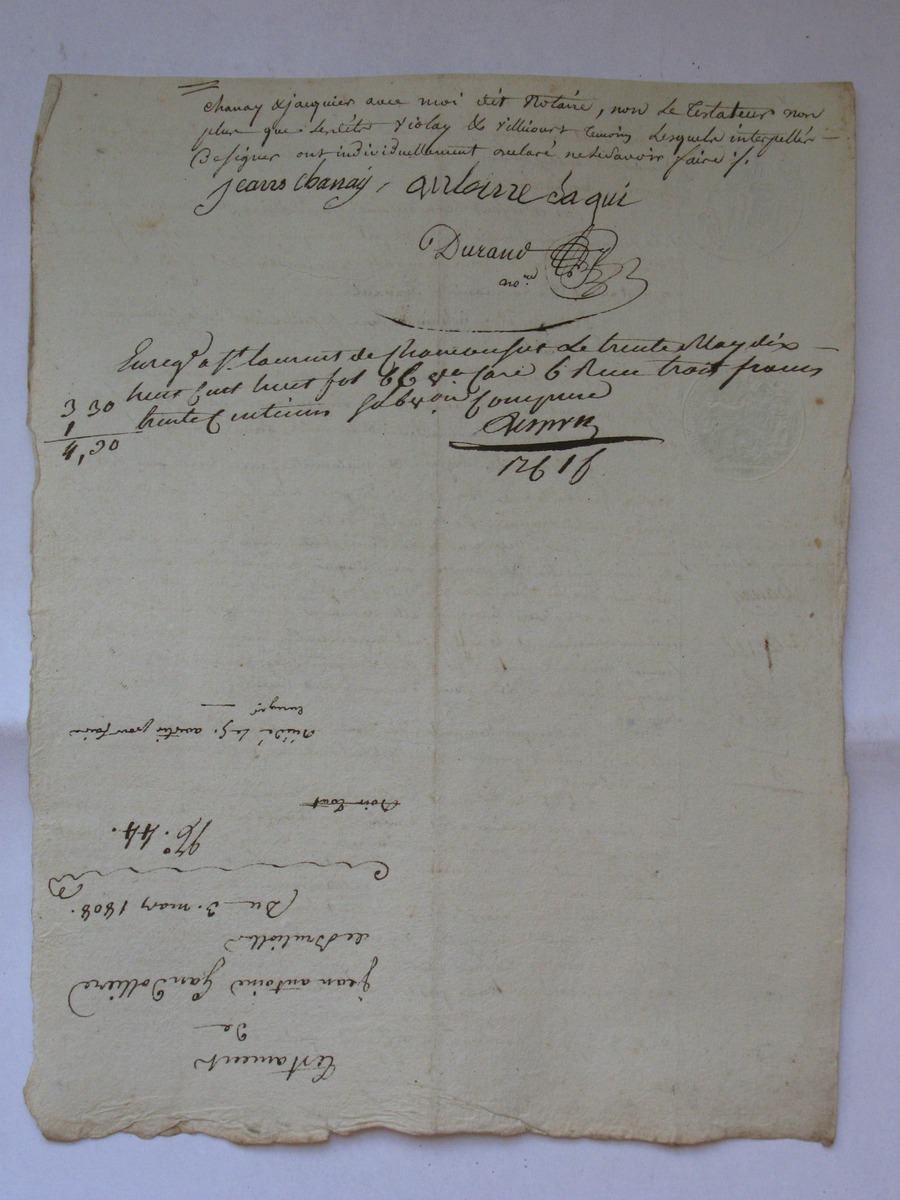 chanay & jacquier avec moi dit Notaire, non le testateur non
plus que lesdits violay & villecourt temoins lesquels interpellés
de signer ont individuellement declaré ne le savoir faire ./.
jeans chanay, antoinne jaqui
Durand
no.re
Enreg.é a St. laurent de Chamousset le trente May dix
huit Cent huit fol 66 v.o Case 6 Reçu trois francs
trente Centimes Subv.on Comprise
3 30
1
4,30
Testament
de
jean antoine Gandolliere
de Brullioles
Du 3. mars 1808.
N.o 44.
Voir tout
averti pour faire
enreg.er